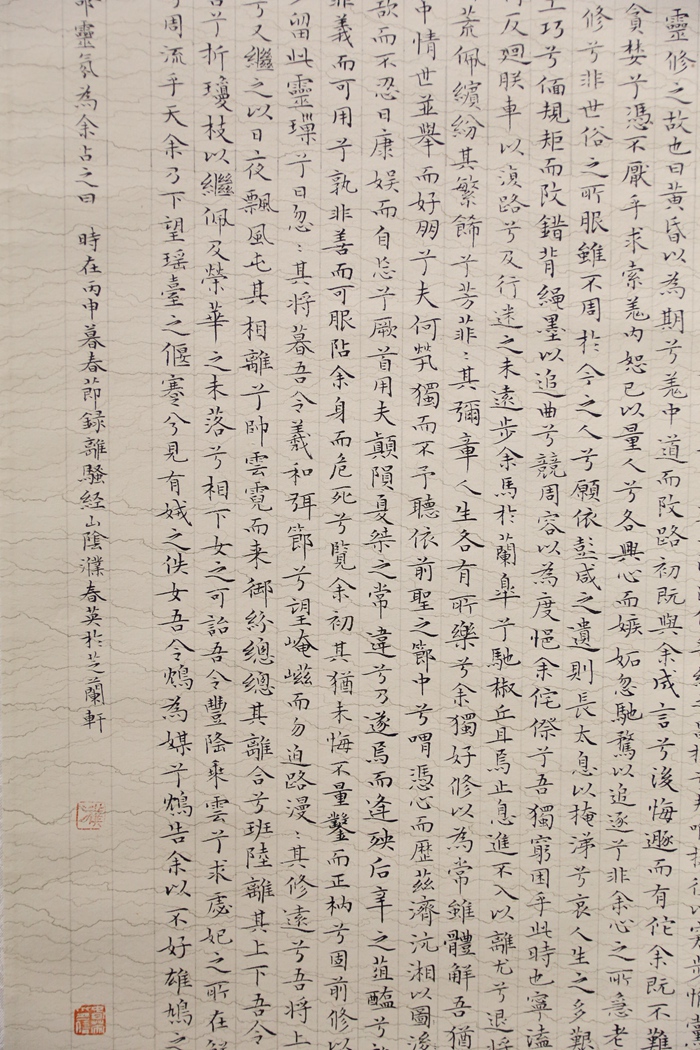 靈修之故也曰黃昏以為期兮羌中道而改路初既與余成言兮後悔遯而有佗余既不難
貪婪兮憑不厭乎求索羌內恕己以量人兮各興心而嫉妬忽馳騖以追逐兮非余心之所急老
修兮非世俗之所服雖不周於今之人兮願依彭咸之遺則長太息以掩涕兮哀人生之多艱
工巧兮偭規矩而改錯背繩墨以追曲兮競周容以為度忳余侘傺兮吾獨窮困乎此時也寧溘
反迴朕車以復路兮及行迷之未遠步余馬於蘭皋兮馳椒丘且焉止息進不入以離尤兮退將
荒佩繽紛其繁飾兮芳菲〻其彌章人生各有所樂兮余獨好修以為常雖體解吾猶
中情世並舉而好朋兮夫何煢獨而不予聽依前聖之節中兮喟憑心而歷茲濟沅湘以
欲而不忍日康娛而自忘兮厥首用夫顛隕夏桀之常違兮乃遂焉而逢殃后辛之菹醢兮
非義而可用兮孰非善而可服阽余身而危死兮覽余初其猶未悔不量鑿而正枘兮固前修以
少留此靈璅兮日忽〻其將暮吾令羲和弭節兮望崦嵫而勿迫路漫〻其修遠兮吾將上
兮又繼之以日夜飄風屯其相離兮帥雲霓而來御紛總總其離合兮班陸離其上下吾令
兮折瓊枝以繼佩及榮華之未落兮相下女之可詒吾令豐隆乘雲兮求虙妃之所在
周流乎天余乃下望瑤臺之偃蹇兮見有娀之佚女吾令鴆為媒兮鴆告余以不好雄鳩之
靈氛為余占之曰 時在丙申暮春節錄離騷經山陰濮春英於芝蘭軒